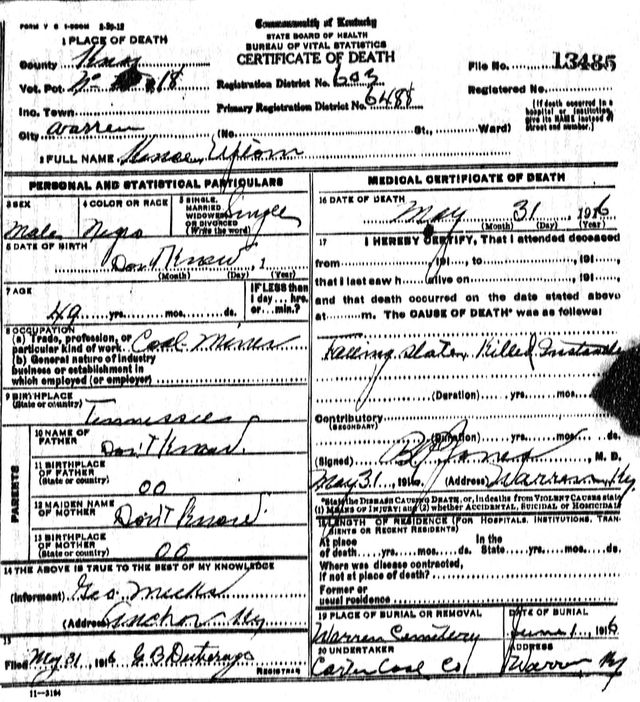 FORM V S 1-500M 8-30-15
Commonwealth of Kentucky
STATE BOARD OF HEALTH
BUREAU OF VITAL STATISTICS
CERTIFICATE OF DEATH
1 PLACE OF DEATH
County Knox
Vot. Pct. No 18
Inc. Town
City Warren
Registration District No. 603
Primary Registration District No. 6488
File No. 13485
Registered No.
(No. St., Ward)
[If death occurred in a hospital or institution, give its NAME instead of street and number.]
2 FULL NAME
PERSONAL AND STATISTICAL PARTICULARS
3 SEX
Male
4 COLOR OR RACE
Negro
5 SINGLE, MARRIED, WIDOWED OR DIVORCED (Write the word)
Single
6 DATE OF BIRTH
Don't Know, 1
(Month) (Day) (Year)
7 AGE
49 yrs. mos. ds.
IF LESS than 1 day... hrs. or... min.?
8 OCCUPATION
(a) Trade, profession, or particular kind of work Coal Miner
(b) General nature of industry business or establishment in which employed (or employer)
9 BIRTHPLACE
(State or country)
Tennessee
PARENTS
10 NAME OF FATHER
Don't Know
11 BIRTHPLACE OF FATHER
(State or country)
OO
12 MAIDEN NAME OF MOTHER
Don't Know
13 BIRTHPLACE OF MOTHER
(State or country)
OO
14 THE ABOVE IS TRUE TO THE BEST OF MY KNOWLEDGE
(Informant) Geo. Micks
(Address) Anchor Ky
15
Filed May 31, 1916 G B
REGISTRAR
11-3184
MEDICAL CERTIFICATE OF DEATH
16 DATE OF DEATH
May 31, 1916
(Month) (Day) (Year)
17 I HEREBY CERTIFY, That I attended deceased
from , 191 , to , 191 ,
that I last saw h alive on , 191 ,
and that death occurred on the date stated above
at m. The CAUSE OF DEATH* was as follows:
Falling Slate Killed
(Duration) yrs. mos. ds.
Contributory
(SECONDARY)
(Duration) yrs. mos. ds.
(Signed) Jones, M. D.
May 31, 1916 (Address) Warren Ky
*State the DISEASE CAUSING DEATH, or, in deaths from VIOLENT CAUSES state
(1) MEANS OF INJURY; and (2) whether ACCIDENTAL, SUICIDAL or HOMICIDAL
18 LENGTH OF RESIDENCE (FOR HOSPITALS, INSTITUTIONS, TRANSIENTS OR RECENT RESIDENTS)
At place of death yrs. mos. ds. In the State yrs. mos. ds.
Where was disease contracted,
if not at place of death?
Former or
usual residence
19 PLACE OF BURIAL OR REMOVAL
Warren Cemetery
DATE OF BURIAL
June 1, 1916
20 UNDERTAKER
Carter Coal Co
ADDRESS
Warren Ky